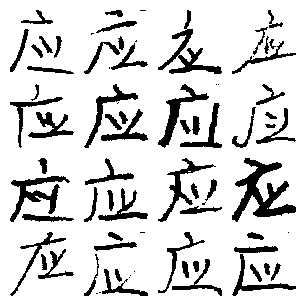 应应应应
应应应应
应应应应
应应应应